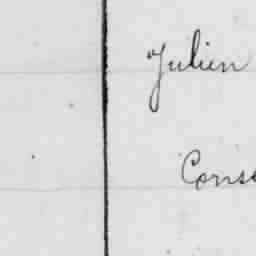 Julien
Cons